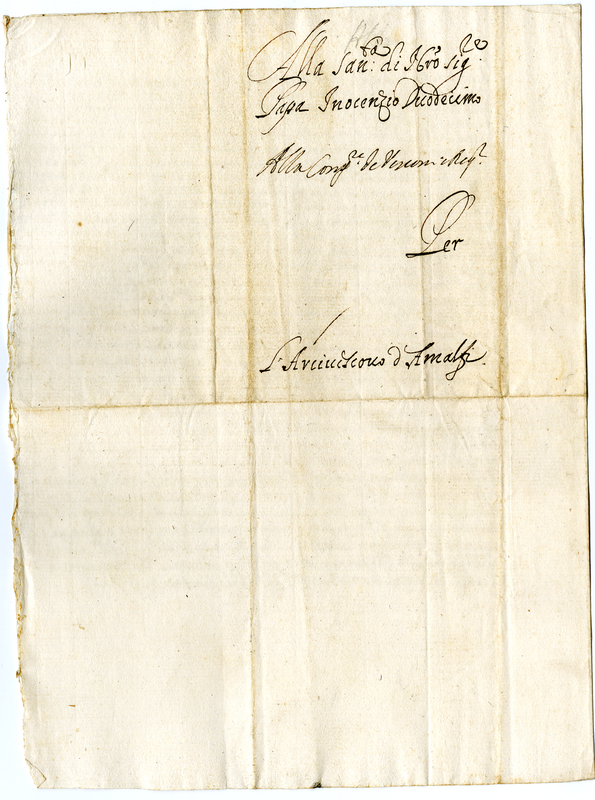 Alla San.tà di Nrō Sig.re
Papa Inocenzio Duodecimo
Alla Cong.ne de Vescovi e Reg.ri
Per
L'Arciuescouo d'Amalfi.